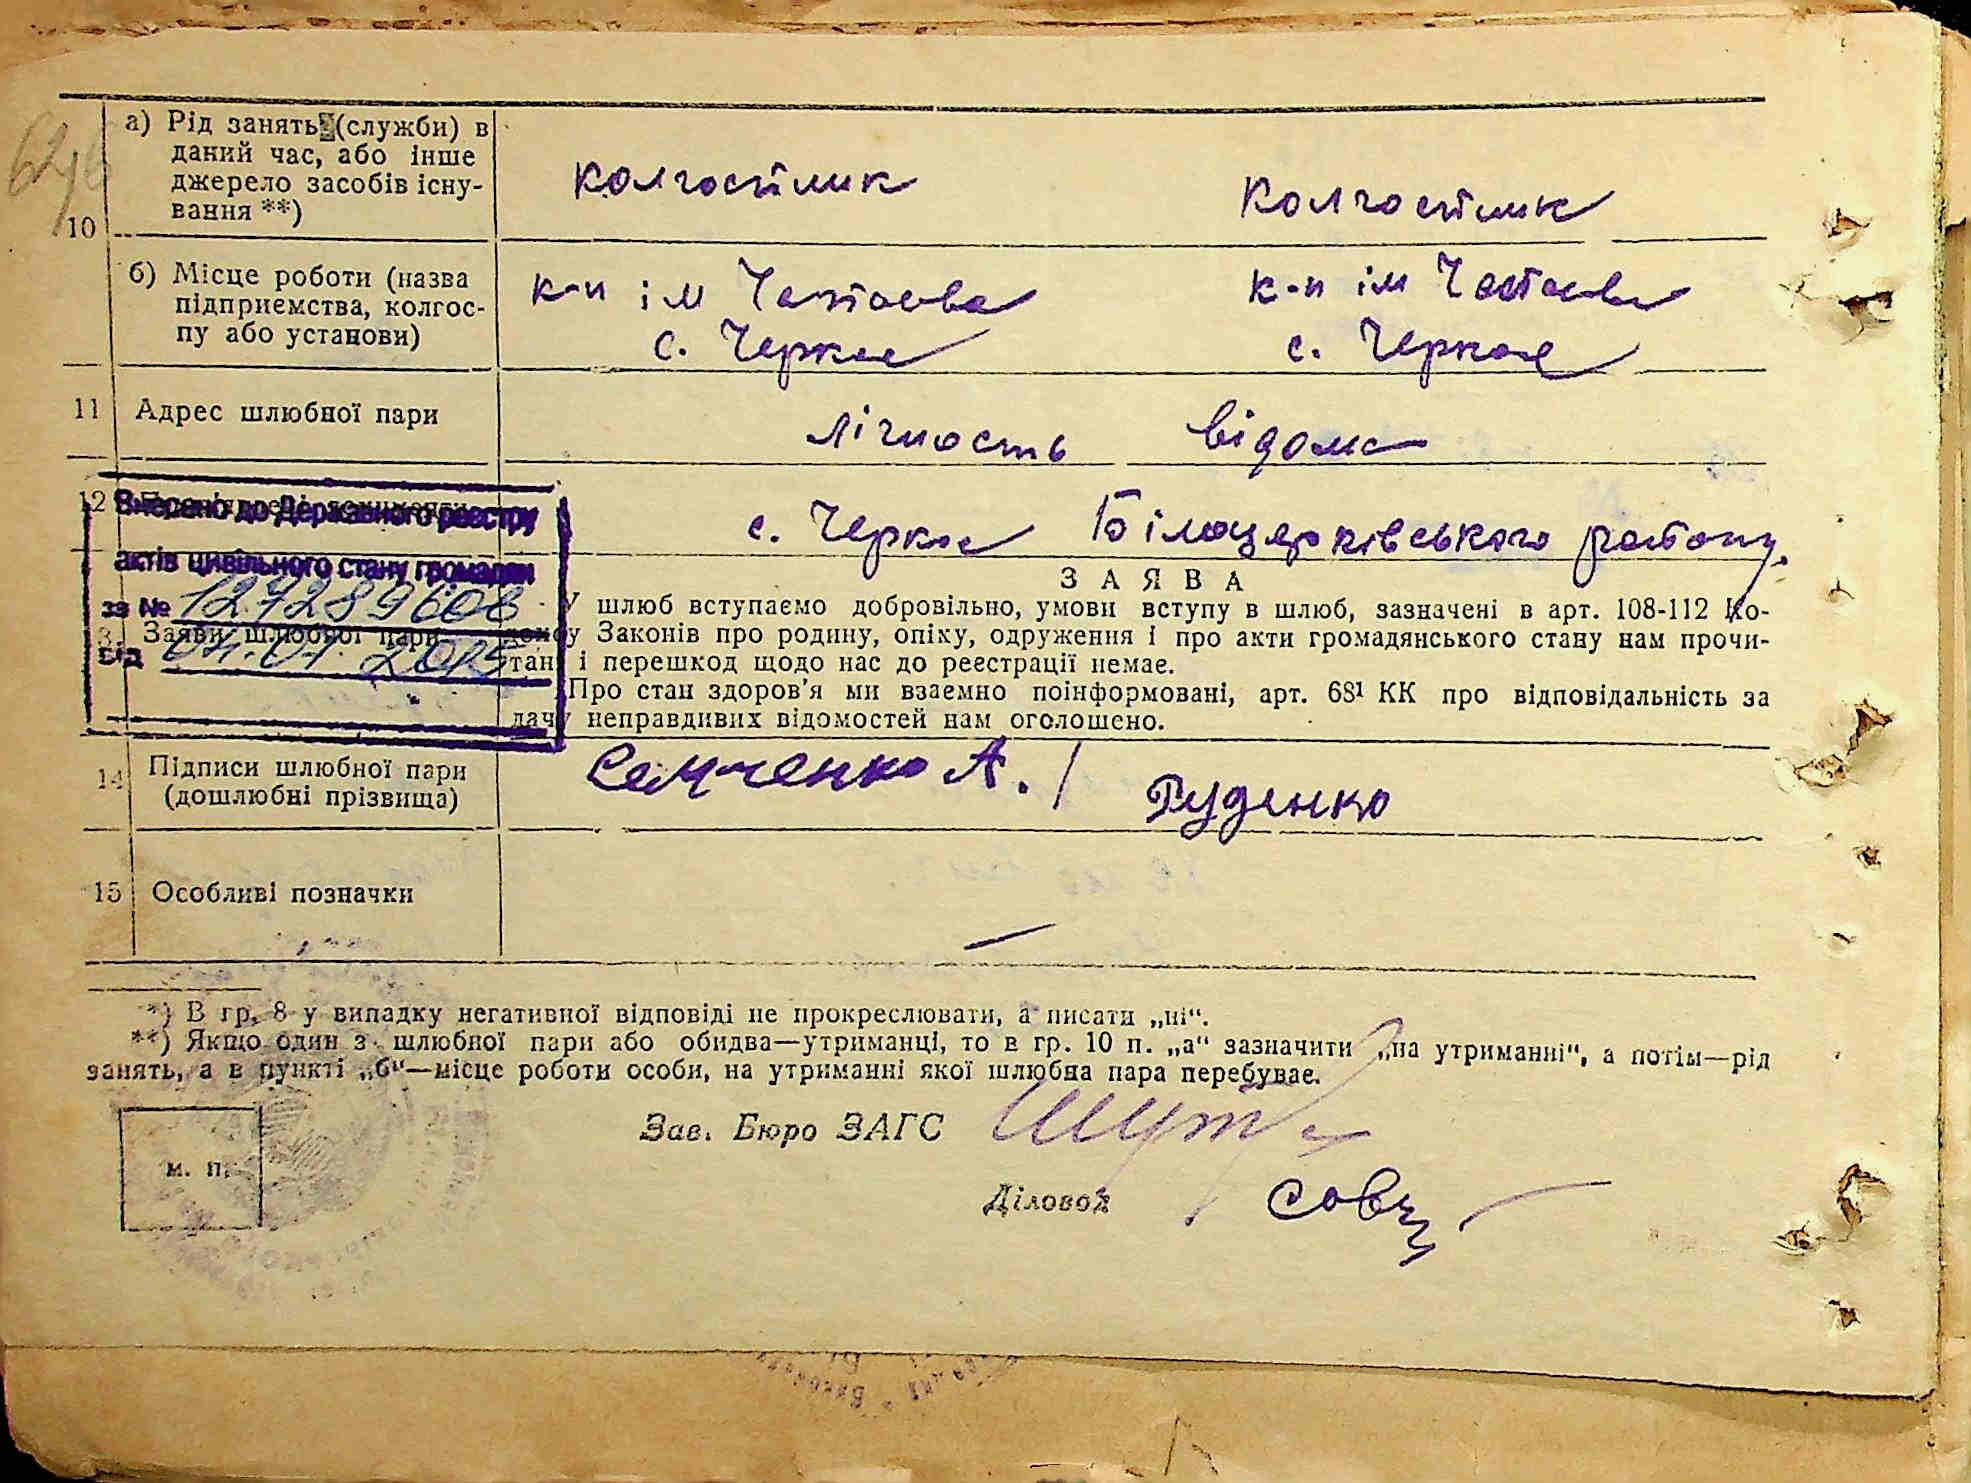 а) Рід занять (служби) в
даний час, або інше
джерело засобів існу-
вання **)
10
колгоспник
колгоспник
б) Місце роботи (назва
підприємства, колгос-
пу або установи)
к-п ім Чапаєва
с. Черкас
к-п ім Чапаєва
с. Черкас
11 Адрес шлюбної пари
лічность відома
12
с. Черкас Білоцерківського району.
Внесено до Державного реєстру
актів цивільного стану громадян
за №
від
Заяви шлюбної пари
ЗАЯВА
У шлюб вступаємо добровільно, умови вступу в шлюб, зазначені в арт. 108-112 Ко-
дексу Законів про родину, опіку, одруження і про акти громадянського стану нам прочи-
тані і перешкод щодо нас до реєстрації немає.
Про стан здоров'я ми взаємно поінформовані, арт. 68¹ КК про відповідальність за
дачу неправдивих відомостей нам оголошено.
14 Підписи шлюбної пари
(дошлюбні прізвища)
Семченко А. / Руденко
15 Особливі позначки
—
*) В гр. 8 у випадку негативної відповіді не прокреслювати, а писати „ні“.
**) Якщо один з шлюбної пари або обидва—утриманці, то в гр. 10 п. „а“ зазначити „на утриманні“, а потім—рід
занять, а в пункті „б“—місце роботи особи, на утриманні якої шлюбна пара перебуває.
Зав. Бюро ЗАГС
Діловод
м. п.